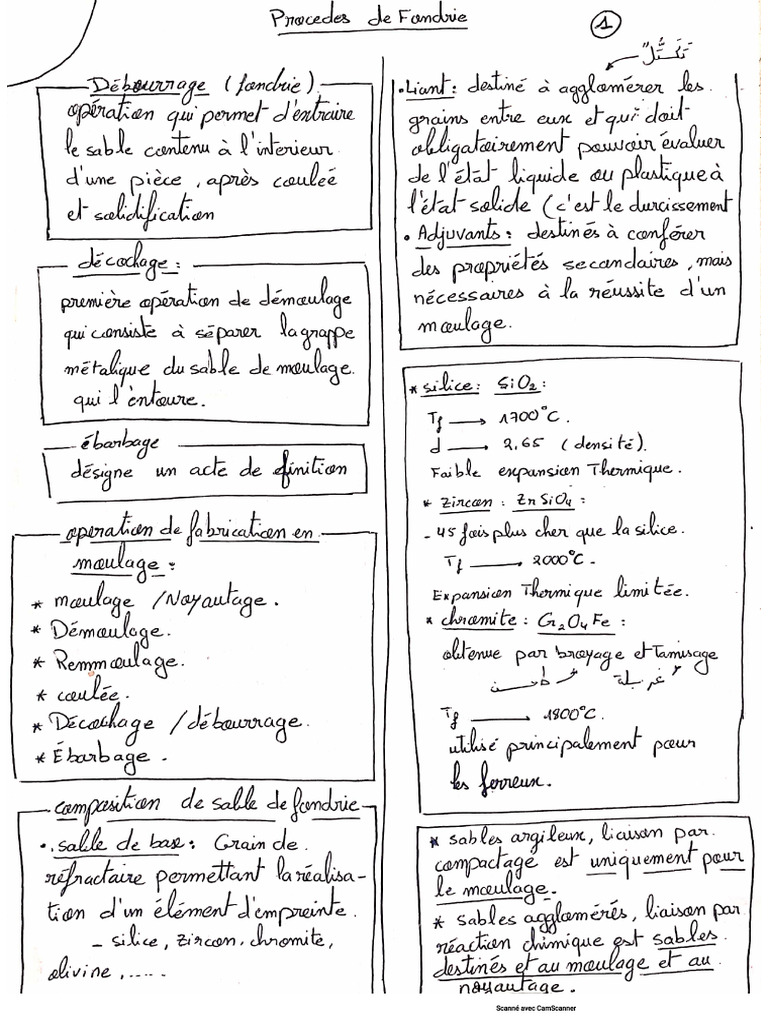 Procedes de Fondrie
1
Débourrage (fondrie)
opération qui permet d'extraire
le sable contenu à l'interieur
d'une pièce, après couleé
et solidification
décochage :
première opération de démoulage
qui consiste à séparer la grappe
métalique du sable de moulage.
qui l'entoure.
ébarbage
désigne un acte de finition
operation de fabrication en
moulage :
* moulage /Noyautage.
* Démoulage.
* Remmoulage.
* coulée.
* Décochage /débourrage.
* Ébarbage.
composition de sable de fondrie
•. sable de base : Grain de
réfractaire permettant la réalisa-
tion d'un élément d'empreinte.
– silice, zircon, chromite,
olivine ,.....
تكتّل
• Liant : destiné à agglomérer les
grains entre eux et qui doit
obligatoirement pouvoir évaluer
de l'état liquide ou plastique à
l'état solide (c'est le durcissement
• Adjuvants : destinés à conférer
des propriétés secondaires, mais
nécessaires à la réussite d'un
moulage.
* silice : SiO2 :
Tf → 1700°C.
d → 2,65 (densité).
Faible expansion Thermique.
* zircon : ZnSiO4 :
- 45 fois plus cher que la silice.
Tf → 2000°C.
Expansion Thermique limitée.
* chromite : Cr2O4Fe :
obtenue par broyage et Tamisage
غربلة
Tf → 1800°C.
utilisé principalement pour
les ferreux.
* sables argileux, liaison par
compactage est uniquement pour
le moulage.
* sables agglomérés, liaison par
réaction chimique est sables
destinés et au moulage et au
noyautage.
Scanné avec CamScanner